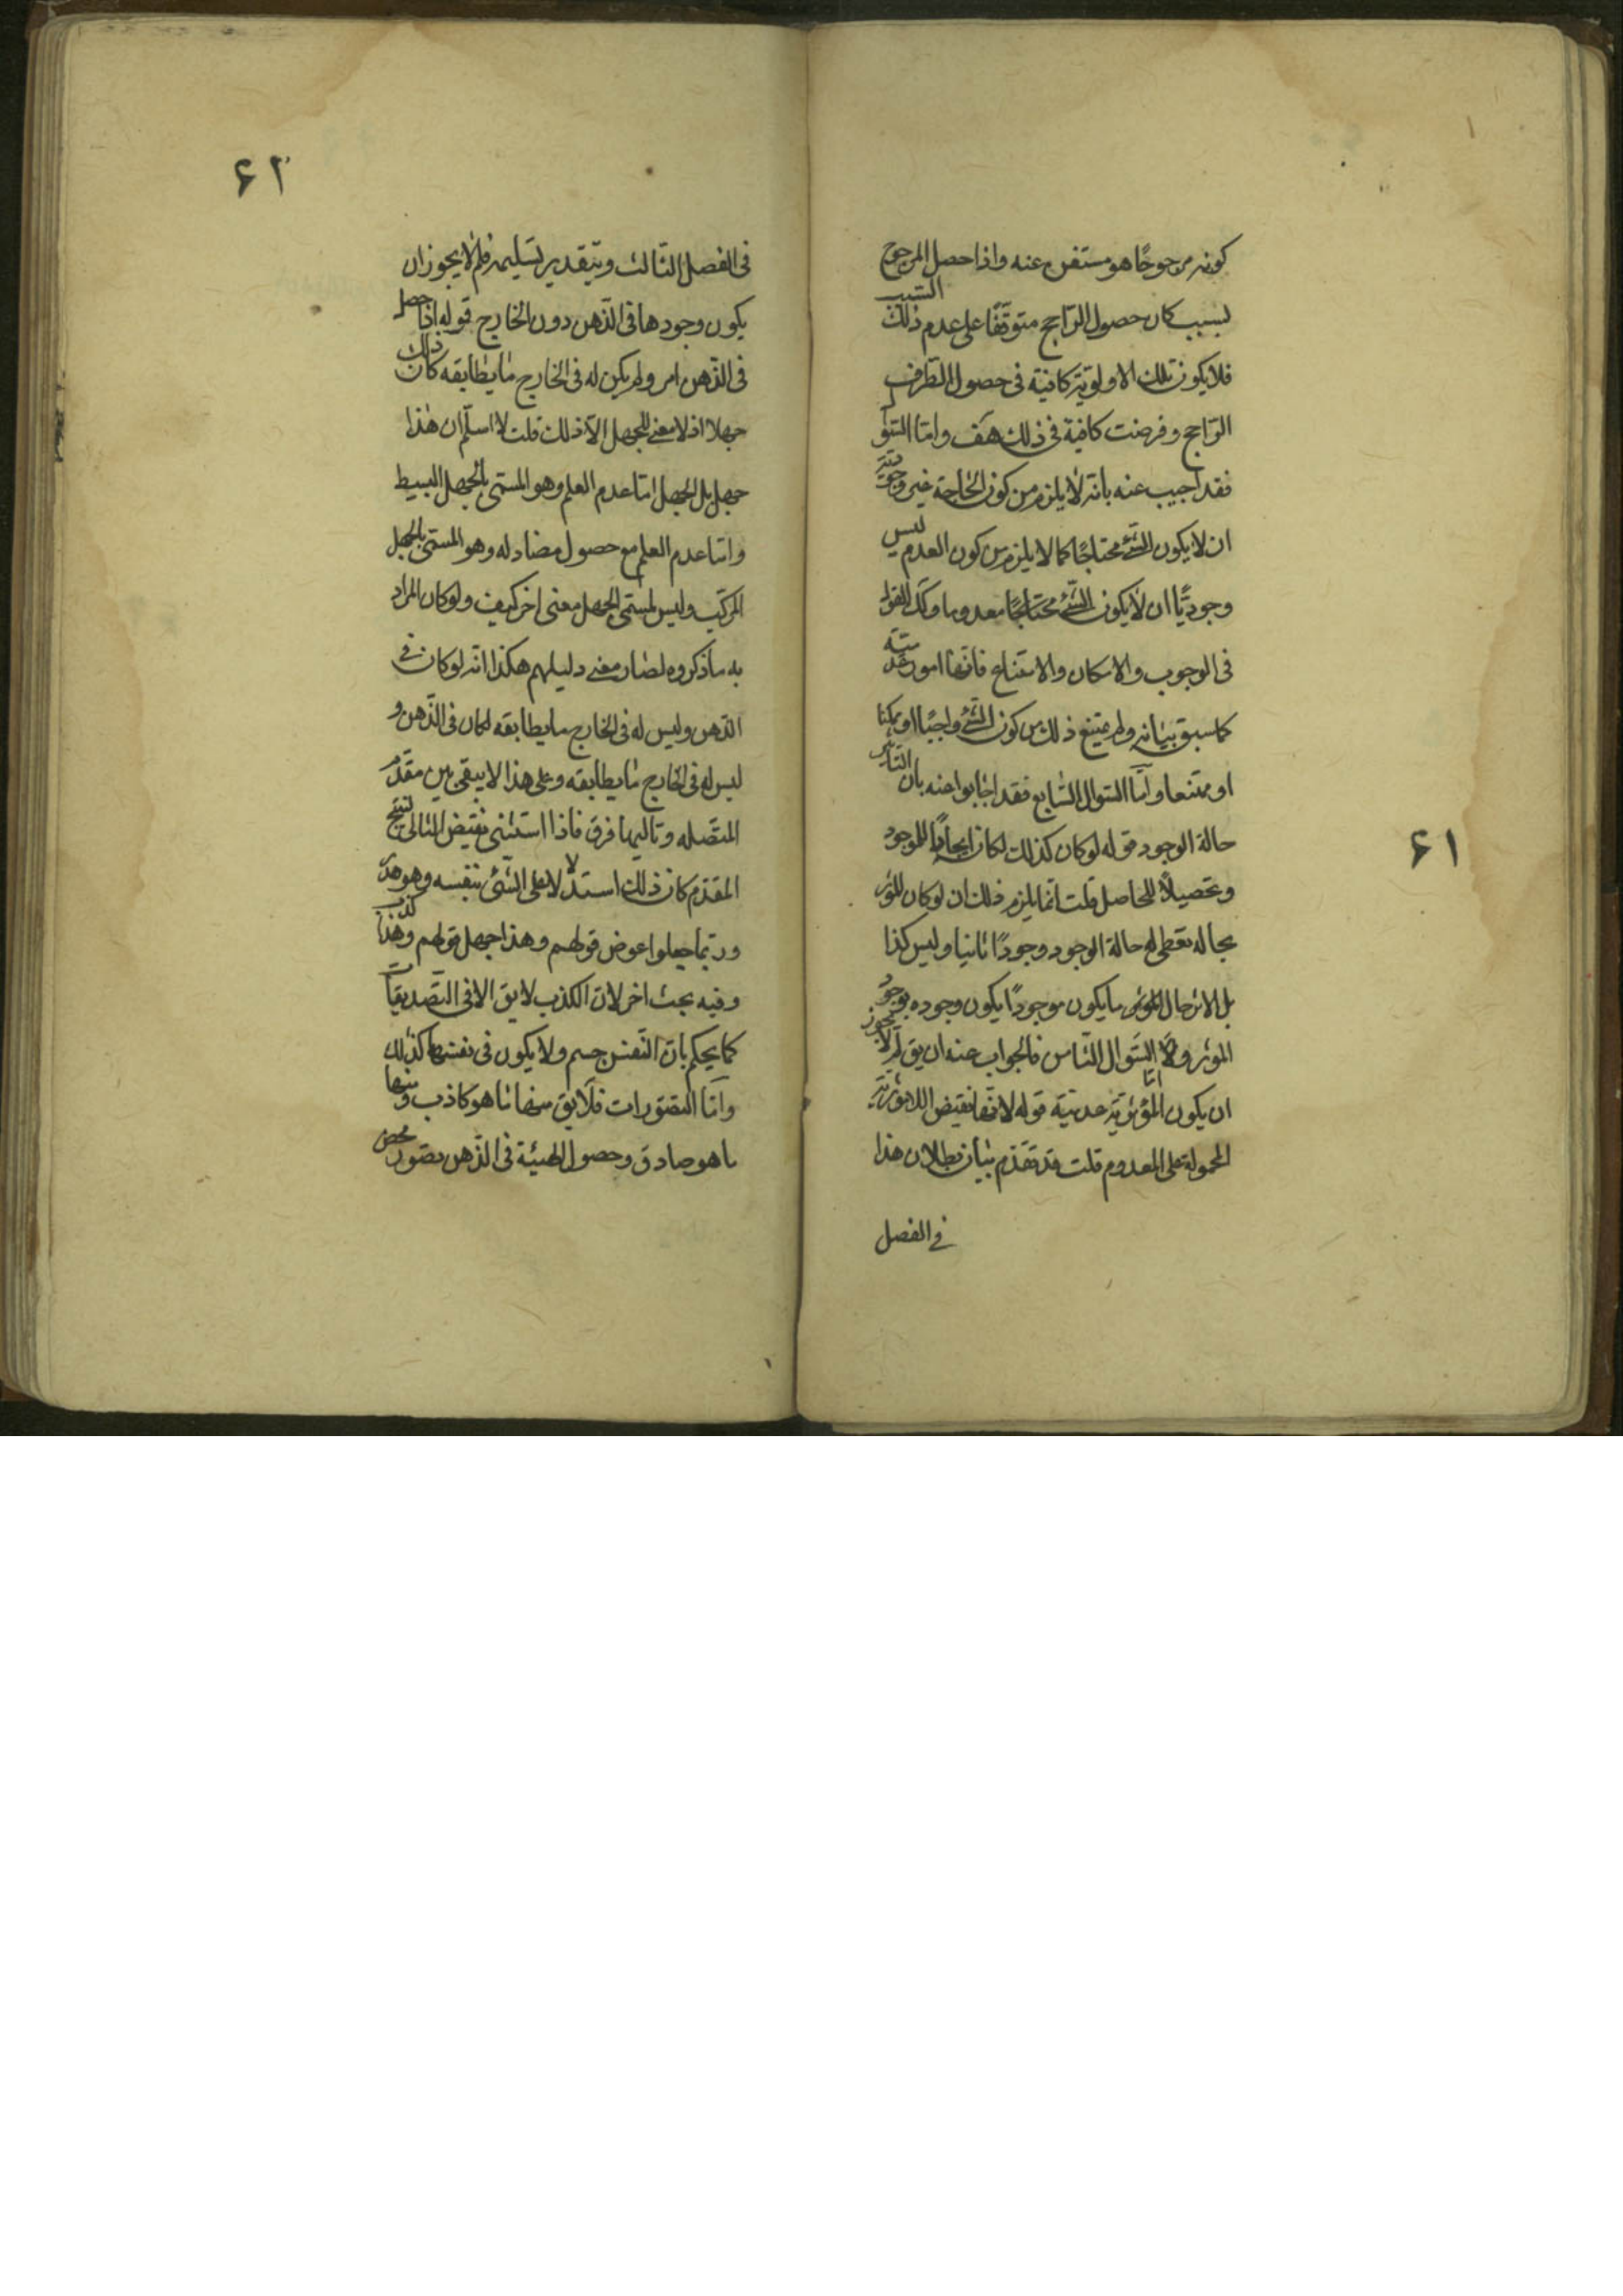 كونه مرجوحًا هو مستغن عنه واذا حصل المرجوح
لسبب كان حصول الراجح متوقفًا على عدم ذلك السبب
فلا يكون تلك الاولوية كافية في حصول الطرف
الراجح وفرضت كافية في ذلك هف واما السؤا
فقد اجيب عنه بانه لا يلزم من كون الحاجة غير وجودية
ان لا يكون الشئ محتاجًا كما لا يلزم من كون العدم ليس
وجوديًا ان لا يكون الشئ معدوما وكذ القول
في الوجوب والامكان والامتناع فانها امور عدمية
كما سبق بيانه ولم يمتنع ذلك من كون الشئ واجبًا او ممكنا
او ممتنعا واما السؤال السابع فقد اجابوا عنه بان التاثير
حالة الوجود قوله لو كان كذلك لكان ايجادًا للموجود
وتحصيلاً للحاصل قلت انما يلزم ذلك ان لو كان للمؤثر
بحاله تعطى له حالة الوجود وجودًا ثانيا وليس كذا
بل الاثر حال المؤثر ما يكون موجودًا يكون وجوده بوجود
الموثر واما السؤال الثامن فالجواب عنه ان يق لم لا يجوز
ان يكون المؤثرية عدمية قوله لانها نقيض اللامؤثرية
المحمولة على المعدوم قلت قد تقدم بيان بطلان هذا
في الفصل
٦١
٦٢
في الفصل الثالث وبتقدير تسليمه فلم لا يجوز ان
يكون وجودها في الذهن دون الخارج قوله اذا حصل
في الذهن امر ولم يكن له في الخارج ما يطابقه كان ذلك
جهلا اذ لا معنى للجهل الا ذلك قلت لا اسلم ان هذا
جهل بل الجهل اما عدم العلم وهو المسمى بالجهل البسيط
واما عدم العلم مع حصول مضاد له وهو المسمى بالجهل
المركب وليس لمسمى الجهل معنى اخر كيف ولو كان المراد
به ما ذكروه لصار معنى دليلهم هكذا انه لو كان في
الذهن وليس له في الخارج ما يطابقه لكان في الذهن و
ليس له في الخارج ما يطابقه وعلى هذا لا يبقى بين مقدم
المتصله وتاليها فرق فاذا استثنى نقيض التالى لينتج
المقدم كان ذلك استدلالا على الشئ بنفسه وهو هذر
وربما جعلوا عوض قولهم وهذا جهل قولهم وهذا كذب
وفيه بحث اخر لان الكذب لا يق الا في التصديقات
كما يحكم بان النفس جسم ولا يكون في نفسها كذلك
واما التصورات فلا يق منها ما هو كاذب ومنها
ما هو صادق وحصول الهيئة في الذهن تصور محض